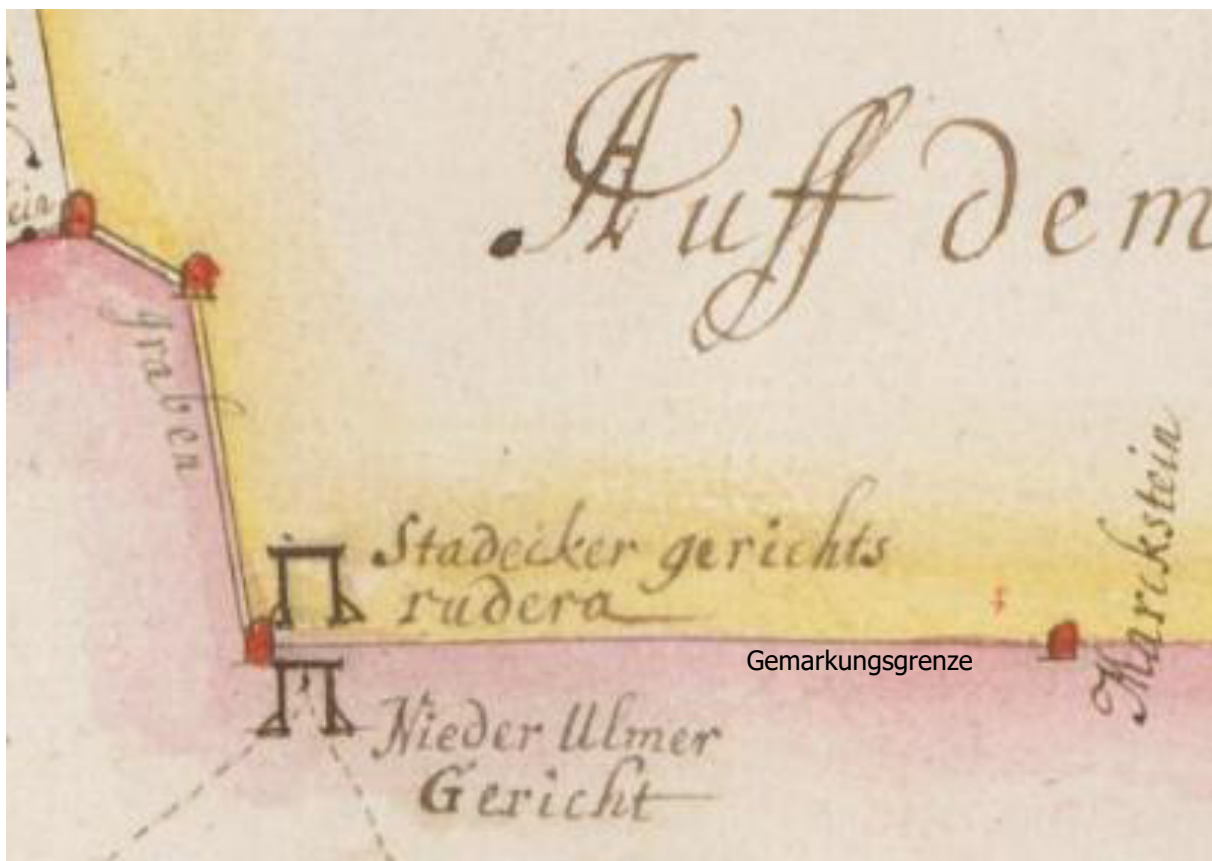 Auff dem
graben
Stadecker gerichts
rudera
Gemarkungsgrenze
Marckstein
Nieder Ulmer
Gericht